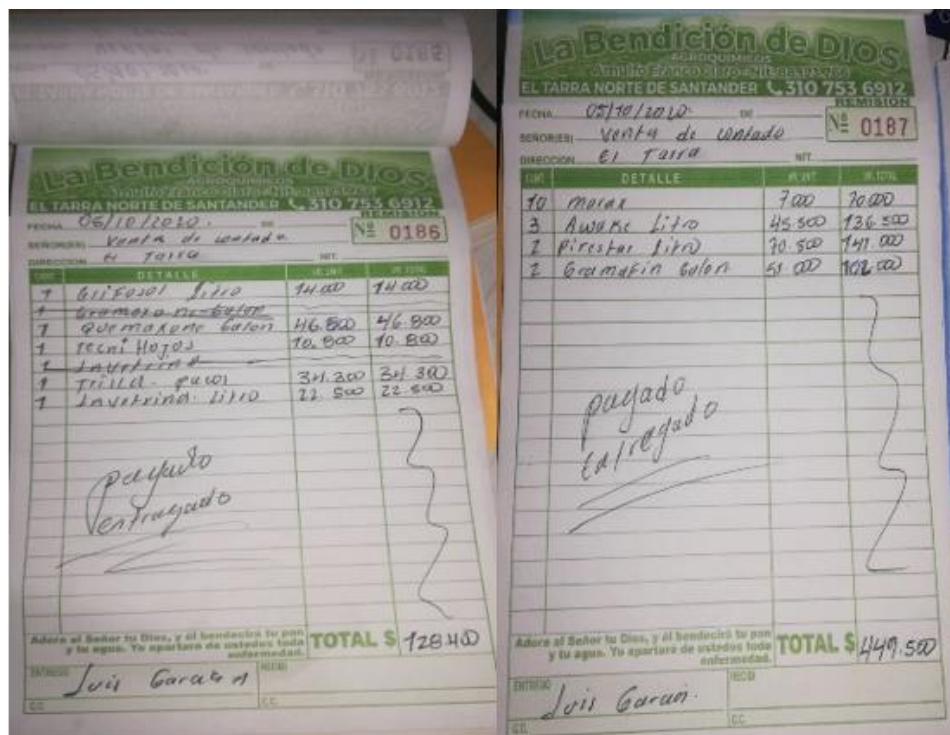 La Bendición de DIOS
AGROQUIMICOS
EL TARRA NORTE DE SANTANDER 310 753 6912
REMISION
FECHA 05/10/2020. DE
Nº 0186
SEÑOR(ES) Venta de contado
DIRECCION El Tarra NIT.
CANT. DETALLE VR. UNIT. VR. TOTAL
1 Glifosol Litro 14.000 14.000
1 Gramoxone Galon
1 Quemaxone Galon 46.800 46.800
1 Tecni Hojos 10.800 10.800
1 Invetrina
1 Trilla 34.300 34.300
1 Invetrina Litro 22.500 22.500
pagado
entregado
Adora al Señor tu Dios, y él bendecirá tu pan
y tu agua. Yo apartaré de ustedes toda
enfermedad.
TOTAL $ 128.400
ENTREGO Luis RECIBI
C.C. C.C.
La Bendición de DIOS
AGROQUIMICOS
Arnulfo Franco
EL TARRA NORTE DE SANTANDER 310 753 6912
REMISION
FECHA 05/10/2020. DE
Nº 0187
SEÑOR(ES) Venta de contado
DIRECCION El Tarra NIT.
CANT. DETALLE VR. UNIT. VR. TOTAL
10 7000 70.000
3 Awake Litro 45.500 136.500
2 Pirestar Litro 70.500 141.000
2 Gramafin Galon 51.000 102.000
pagado
Entregado
Adora al Señor tu Dios, y él bendecirá tu pan
y tu agua. Yo apartaré de ustedes toda
enfermedad.
TOTAL $ 449.500
ENTREGO Luis RECIBI
C.C. C.C.